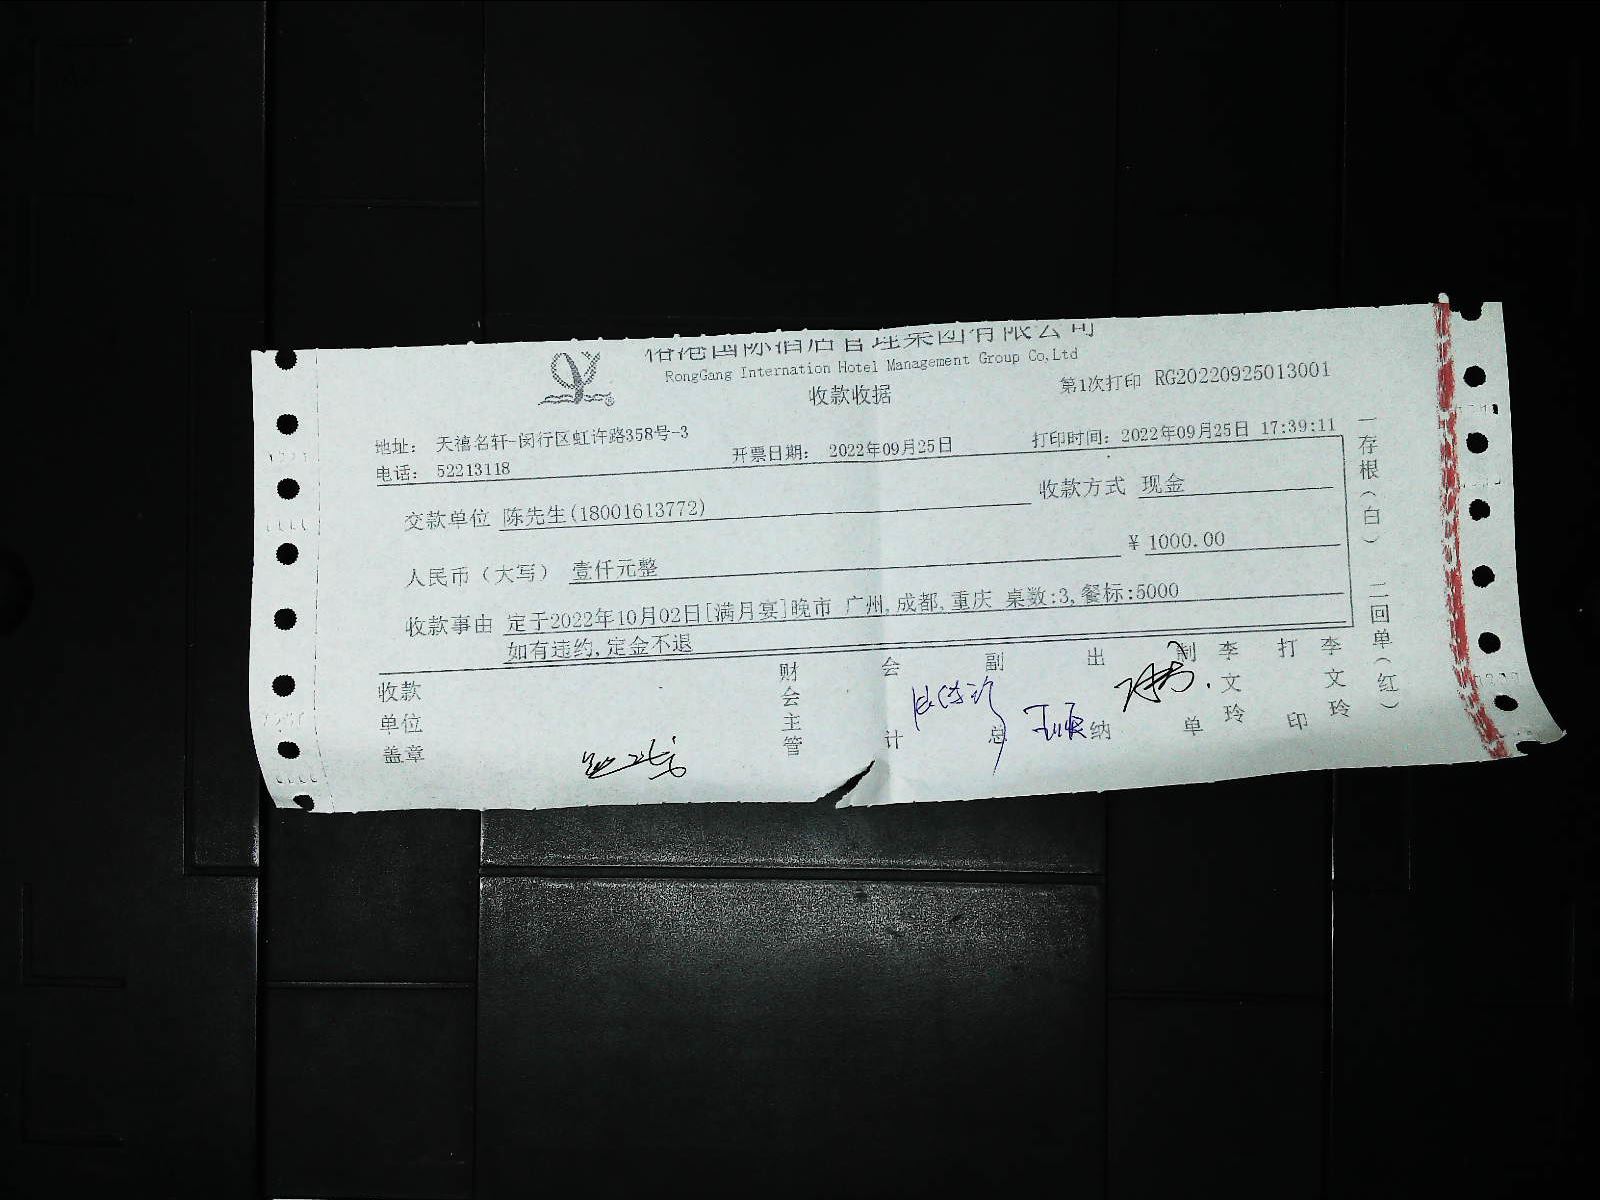 港国际酒店管理集团有限公司
RongGang Internation Hotel Management Group Co,Ltd
收款收据
第1次打印 RG20220925013001
地址: 天禧名轩-闵行区虹许路358号-3
电话: 52213118
开票日期: 2022年09月25日
打印时间: 2022年09月25日 17:39:11
交款单位 陈先生(18001613772)
收款方式 现金
人民币(大写) 壹仟元整
¥ 1000.00
收款事由 定于2022年10月02日[满月宴]晚市 广州,成都,重庆 桌数:3,餐标:5000
如有违约,定金不退
收款单位盖章
财会主管
会计
副总
出纳
制单
李文玲
打印
李文玲
一存根(白) 二回单(红)